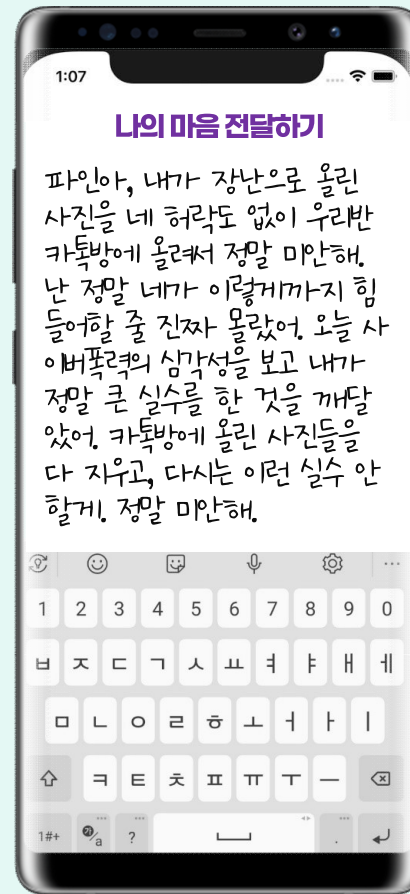 1:07
나의 마음 전달하기
파인아, 내가 장난으로 올린
사진을 네 허락도 없이 우리반
카톡방에 올려서 정말 미안해.
난 정말 네가 이렇게까지 힘
들어할 줄 진짜 몰랐어. 오늘 사
이버폭력의 심각성을 보고 내가
정말 큰 실수를 한 것을 깨달
았어. 카톡방에 올린 사진들을
다 지우고, 다시는 이런 실수 안
할게. 정말 미안해.
1 2 3 4 5 6 7 8 9 0
ㅂ ㅈ ㄷ ㄱ ㅅ ㅛ ㅕ ㅑ ㅐ ㅔ
ㅁ ㄴ ㅇ ㄹ ㅎ ㅗ ㅓ ㅏ ㅣ
ㅋ ㅌ ㅊ ㅍ ㅠ ㅜ ㅡ
1#+ 가/a ? .